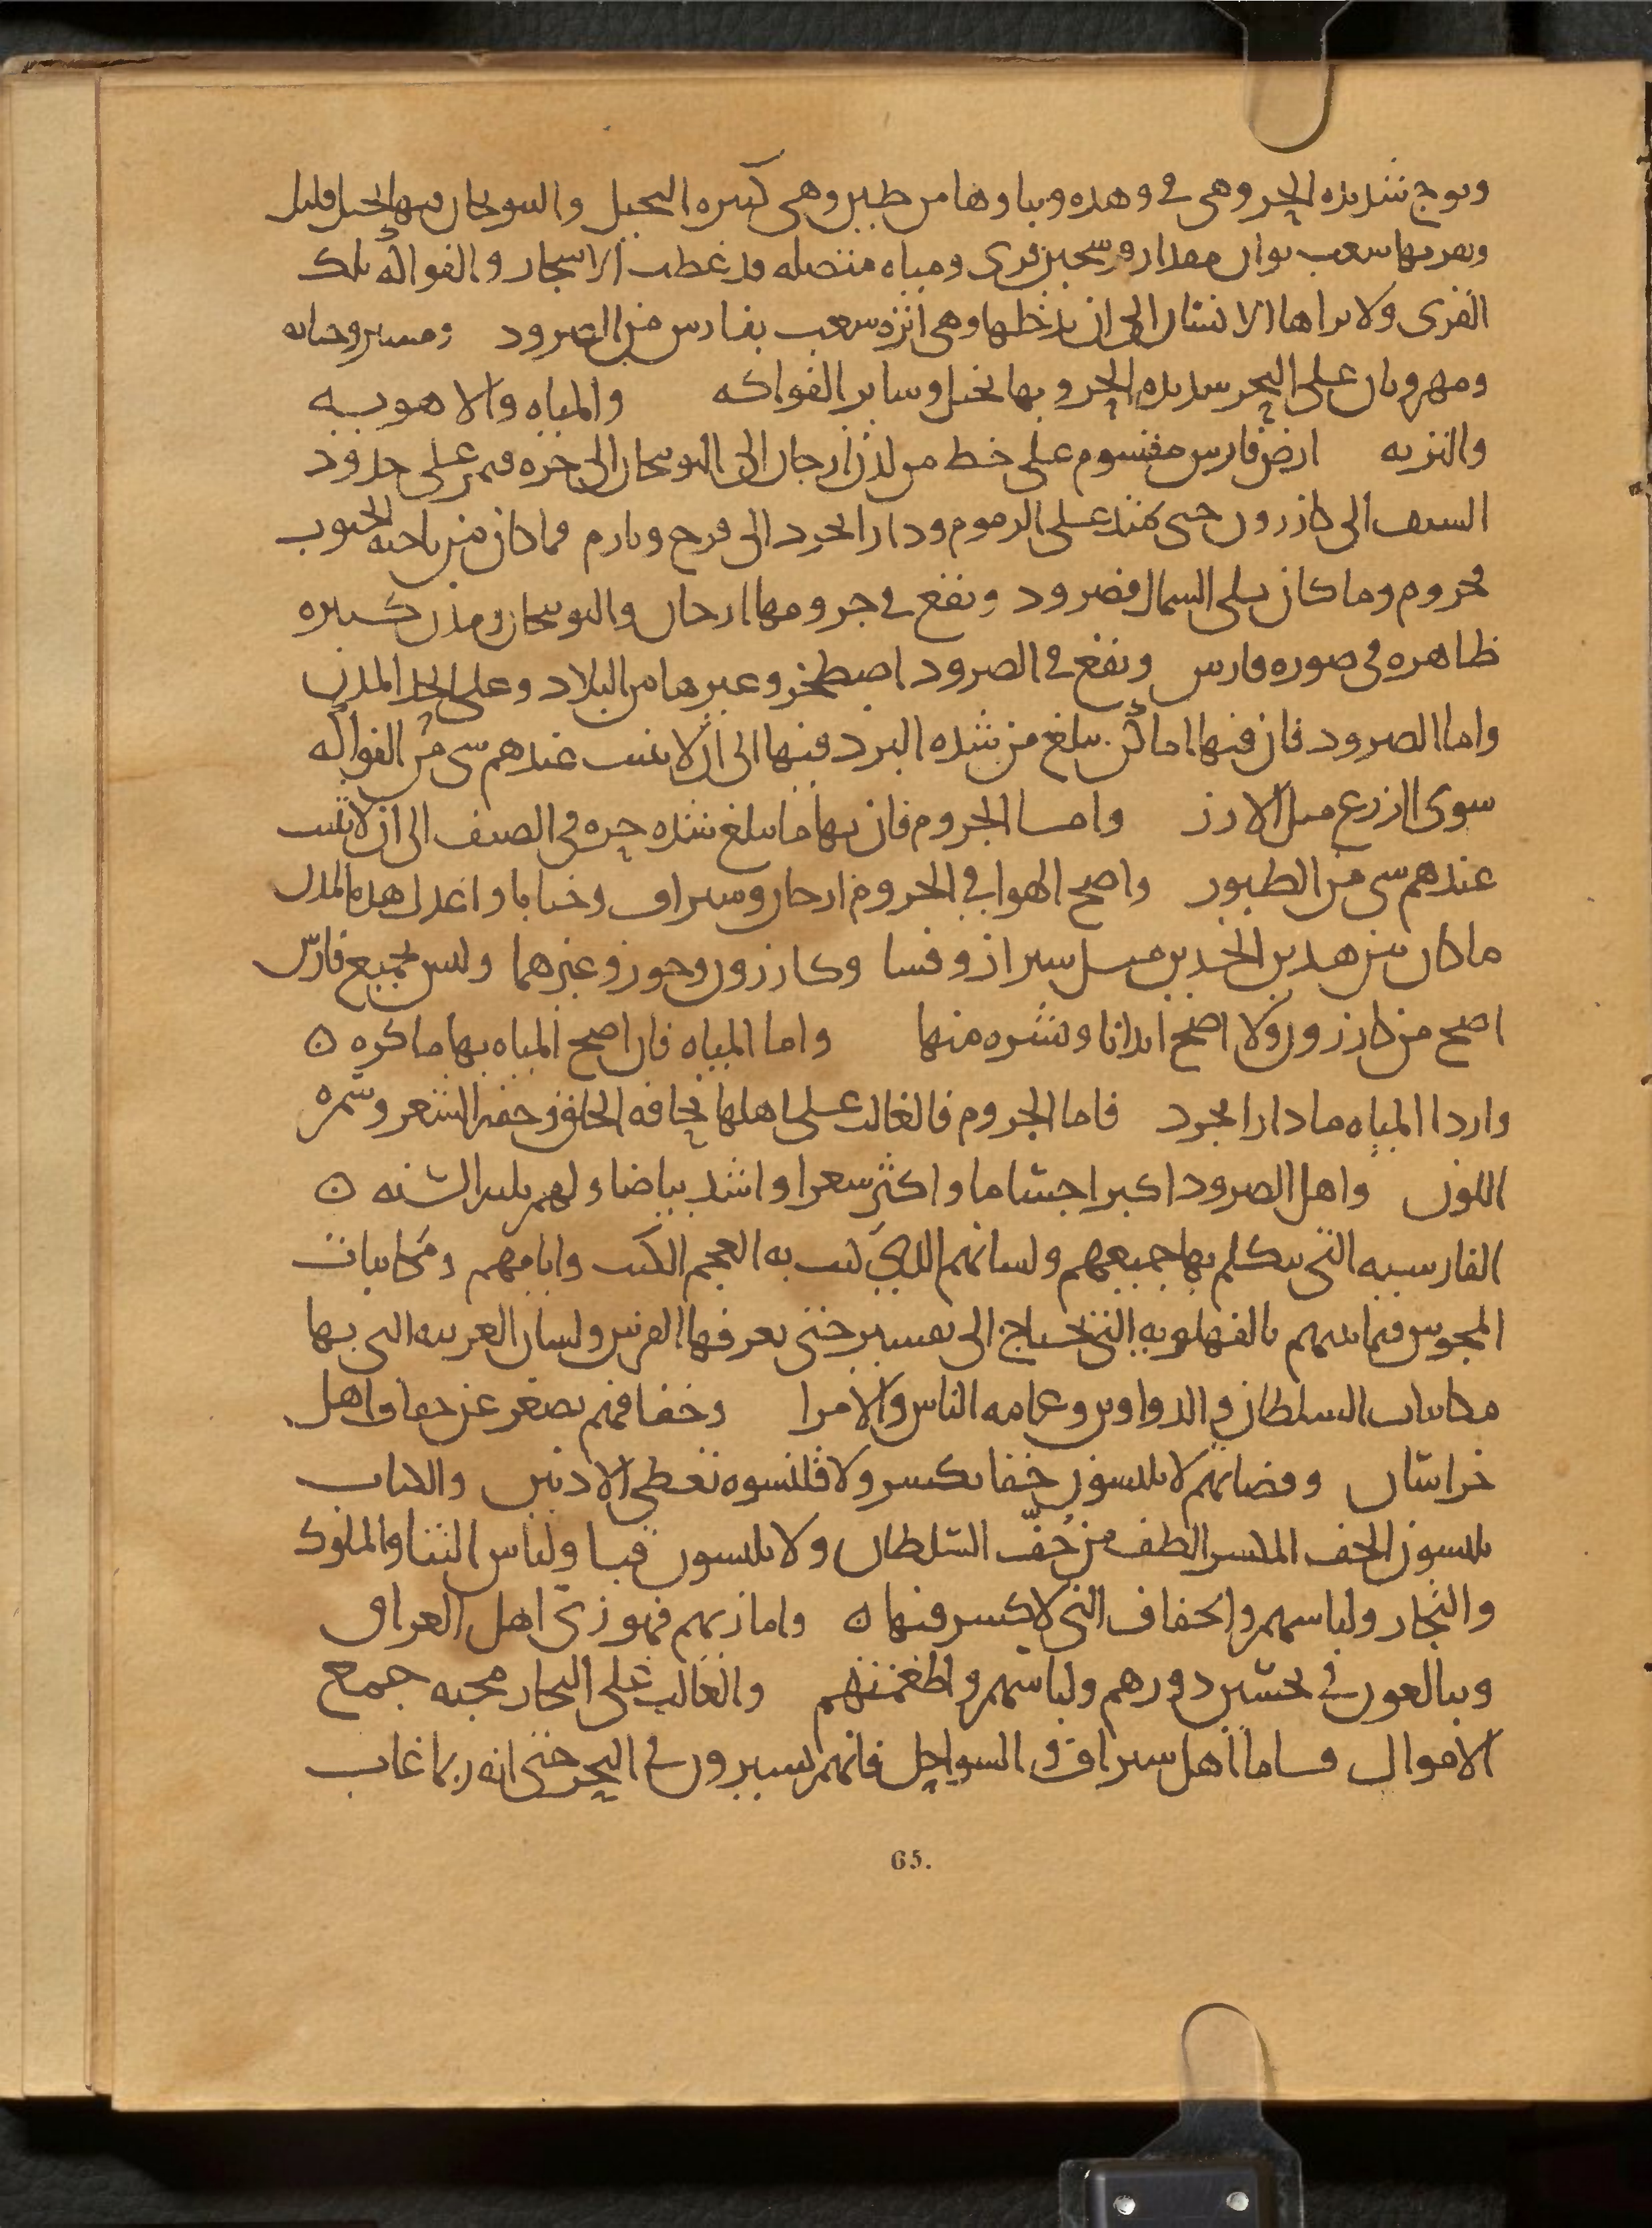 وتوج شديده الحر وهى فى وهده وبناوها من طين وهى كثيره النخيل والنوبجان بها نخيل قليل
وبقربها شعب بوان مقدار فرسخين قرى ومياه متصله قد غطت الاشجار والفواكه تلك
القرى ولا يراها الانسان الى ان يدخلها وهى انزه شعب بفارس من الصرود وسينيز وجنابه
ومهروبان على البحر شديده الحر وبها نخل وساير الفواكه والمياه والاهويه
والتربه ارض فارس مقسوم على خط من لدن ارجان الى النوبجان الى خره فيمر على حدود
السيف الى كازرون حتى يمتد على الرموم ودارابجرد الى فرج وتارم فما كان من ناحيه الجنوب
فجروم وما كان يلى الشمال فصرود ويقع فى جرومها ارجان والنوبجان ومدن كثيره
ظاهره فى صوره فارس ويقع فى الصرود اصطخر وغيرها من البلاد وعلى الحد المدن
واما الصرود فان فيها اماكن يبلغ من شده البرد فيها الى ان لا ينبت عندهم شى من الفواكه
سوى الزرع مثل الارز واما الجروم فان بها ما يبلغ شده حره فى الصيف الى ان لا يثبت
عندهم شى من الطيور واصح الهوا فى الجروم ارجان وسيراف وجنابا واعدل هذه المدن
ما كان بين هدين الحدين مثل شيراز وفسا وكازرون وجور وغيرهما وليس بجميع فارس
اصح من كازرون ولا اصح ابدانا وبشره منها واما المياه فان اصح المياه بها ما كره ن
واردا المياه ما دارابجرد فاما الجروم فالغالب على اهلها نحافه الخلق وخفه الشعر وسمره
اللون واهل الصرود اكبر اجساما واكثر شعرا واشد بياضا ولهم ثلث السنه ن
الفارسيه التى يتكلم بها جميعهم ولسانهم الذى كتب به العجم الكتب وايامهم ومكاتبات
المجوس فيما بينهم بالفهلويه التى تحتاج الى تفسير حتى يعرفها الفرس ولسان العربيه التى بها
مكاتبات السلطان والدواوين وعامه الناس والامرا وخفافهم يصغر عن خفاف اهل
خراسان وقضاتهم لا يلبسون خفا بكسر ولا قلنسوه تغطى الاذنين والكتاب
يلبسون الخف المكسر الطف من خف السلطان ولا يلبسون قبا ولباس التنا والملوك
والتجار ولباسهم والخفاف التى لا كسر فيها ن واما زيهم فهو زى اهل العراق
ويبالغون فى تحسين دورهم ولباسهم واطعمتهم والغالب على التجار محبه جمع
الاموال فاما اهل سيراف والسواحل فانهم يسيرون فى البحر حتى انه ربما غاب
65.